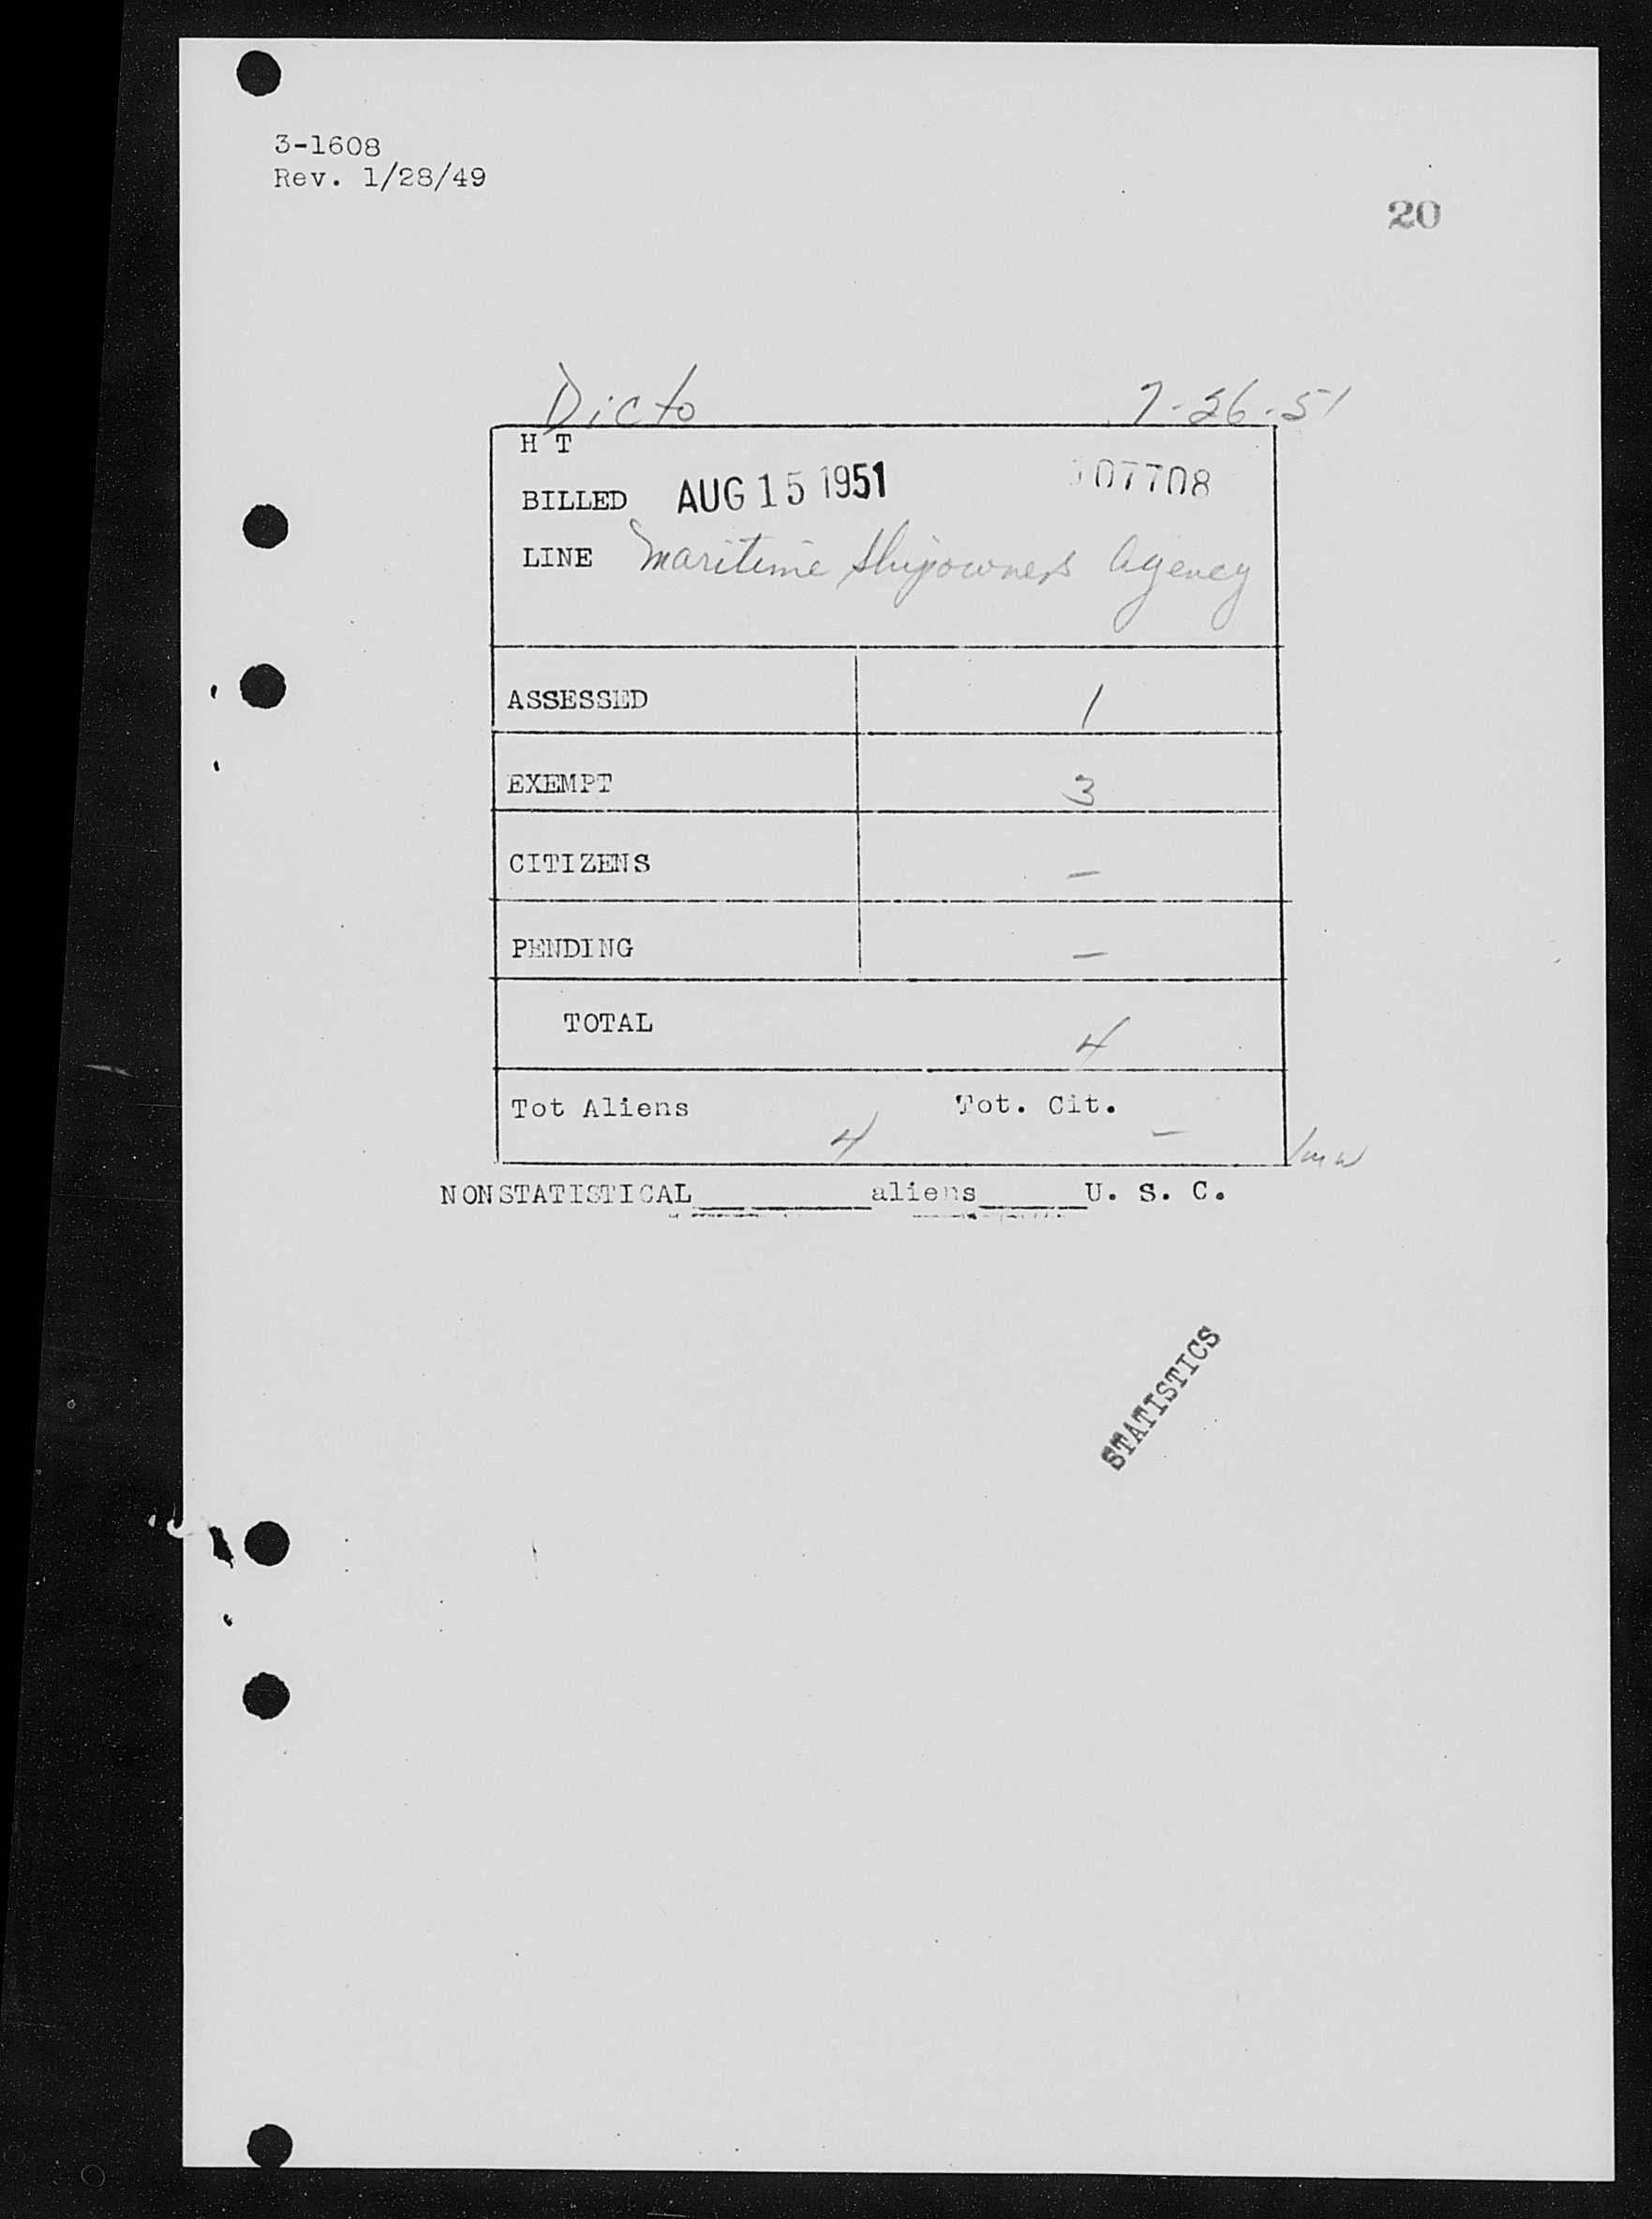 3-1608
Rev. 1/28/49
20
Dicto 7-26-51
H T
BILLED AUG 15 1951 107708
LINE Maritime Shipowners Agency
ASSESSED 1
EXEMPT 3
CITIZENS –
PENDING –
TOTAL 4
Tot Aliens 4 Tot. Cit. –
NONSTATISTICAL__________aliens______U. S. C.
STATISTICS